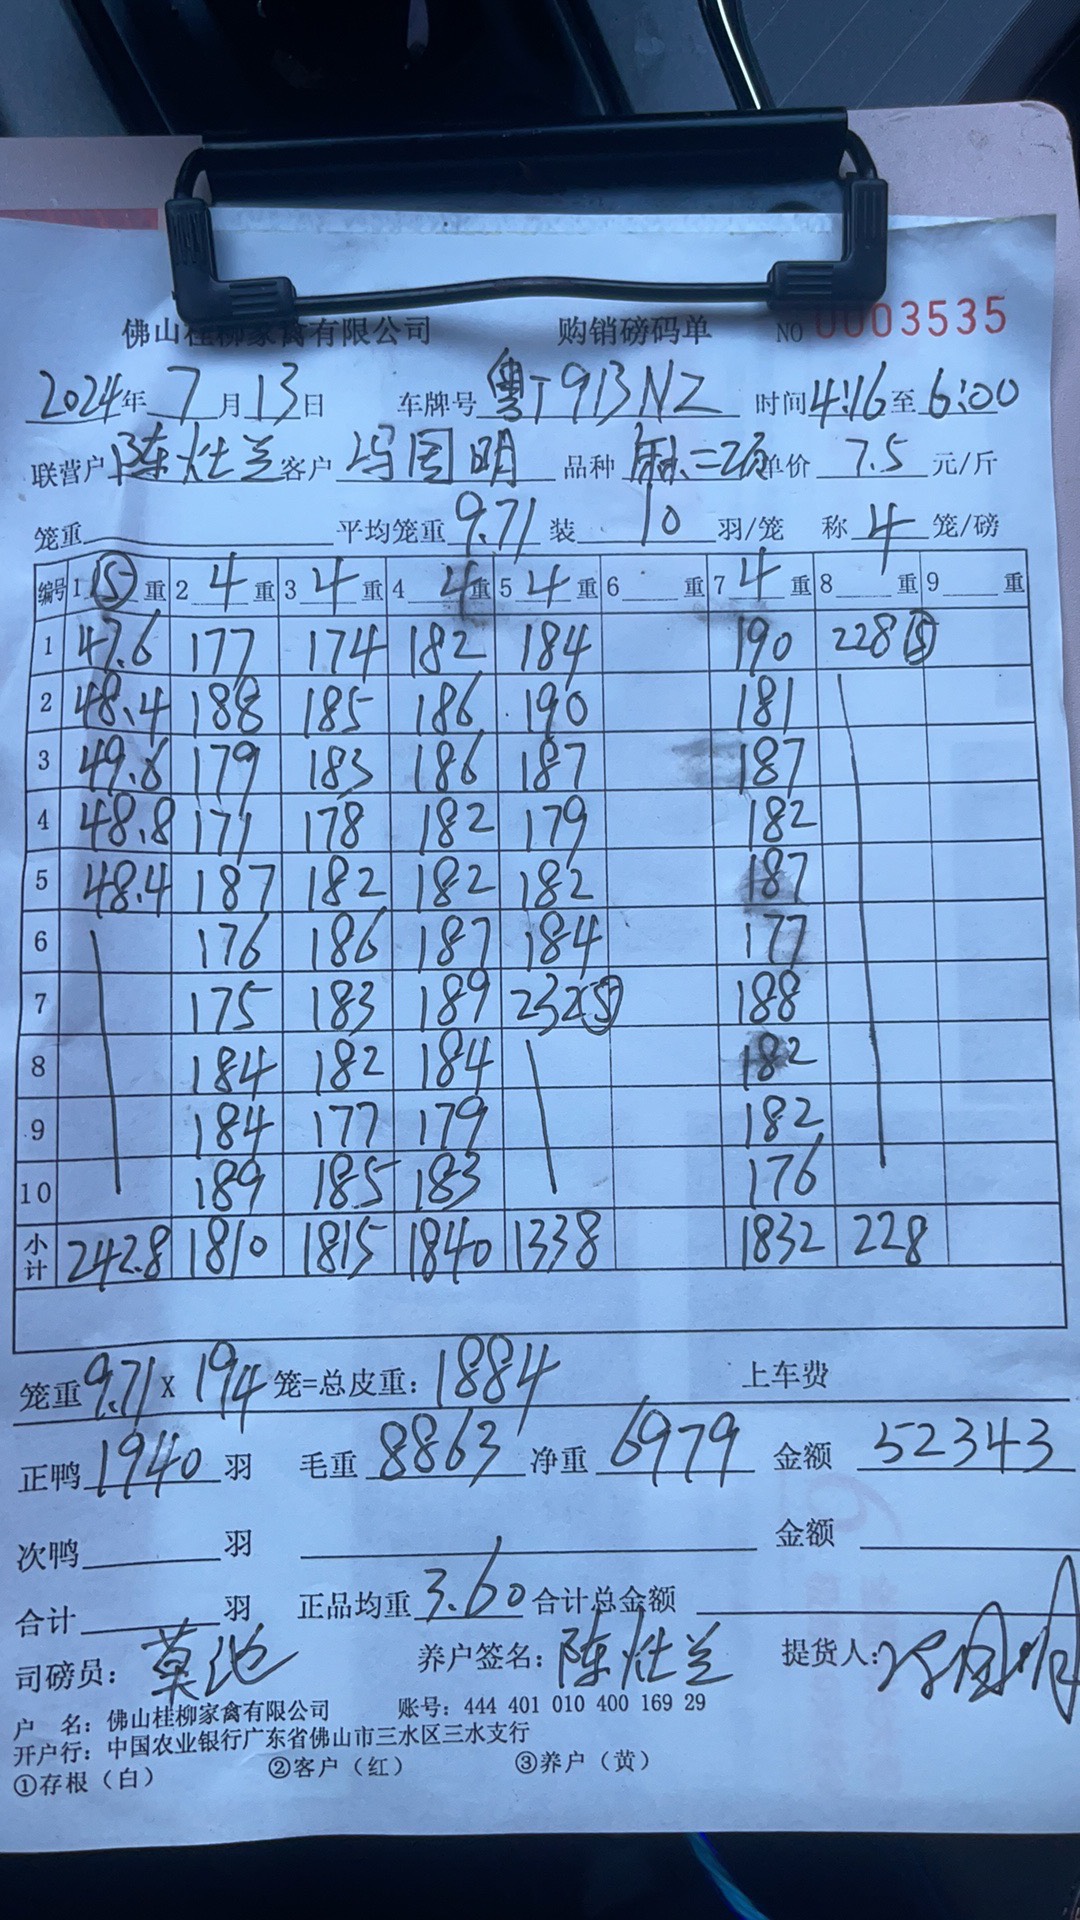 佛山桂柳家禽有限公司 购销磅码单 NO 0003535
2024年7月13日 车牌号粤T913NZ 时间4:16至6:00
联营户陈灶兰客户冯国明 品种 单价7.5元/斤
笼重 平均笼重9.71装10羽/笼 称4笼/磅
编号 1 ⑤重 2 4重 3 4重 4 4重 5 4重 6 重 7 4重 8 重 9 重
1 47.6 177 174 182 184 190 228⑤
2 48.4 188 185 186 190 181
3 49.6 179 183 186 187 187
4 48.8 171 178 182 179 182
5 48.4 187 182 182 182 187
6 176 186 187 184 177
7 175 183 189 232⑤ 188
8 184 182 184 182
9 184 177 179 182
10 189 185 183 176
小计 242.8 1810 1815 1840 1338 1832 228
笼重9.71X194笼=总皮重:1884 上车费
正鸭1940羽 毛重8863净重6979 金额52343
次鸭 羽 金额
合计 羽 正品均重3.60合计总金额
司磅员: 养户签名:陈灶兰 提货人:冯国明
户 名:佛山桂柳家禽有限公司 账号:444 401 010 400 169 29
开户行:中国农业银行广东省佛山市三水区三水支行
①存根(白) ②客户(红) ③养户(黄)